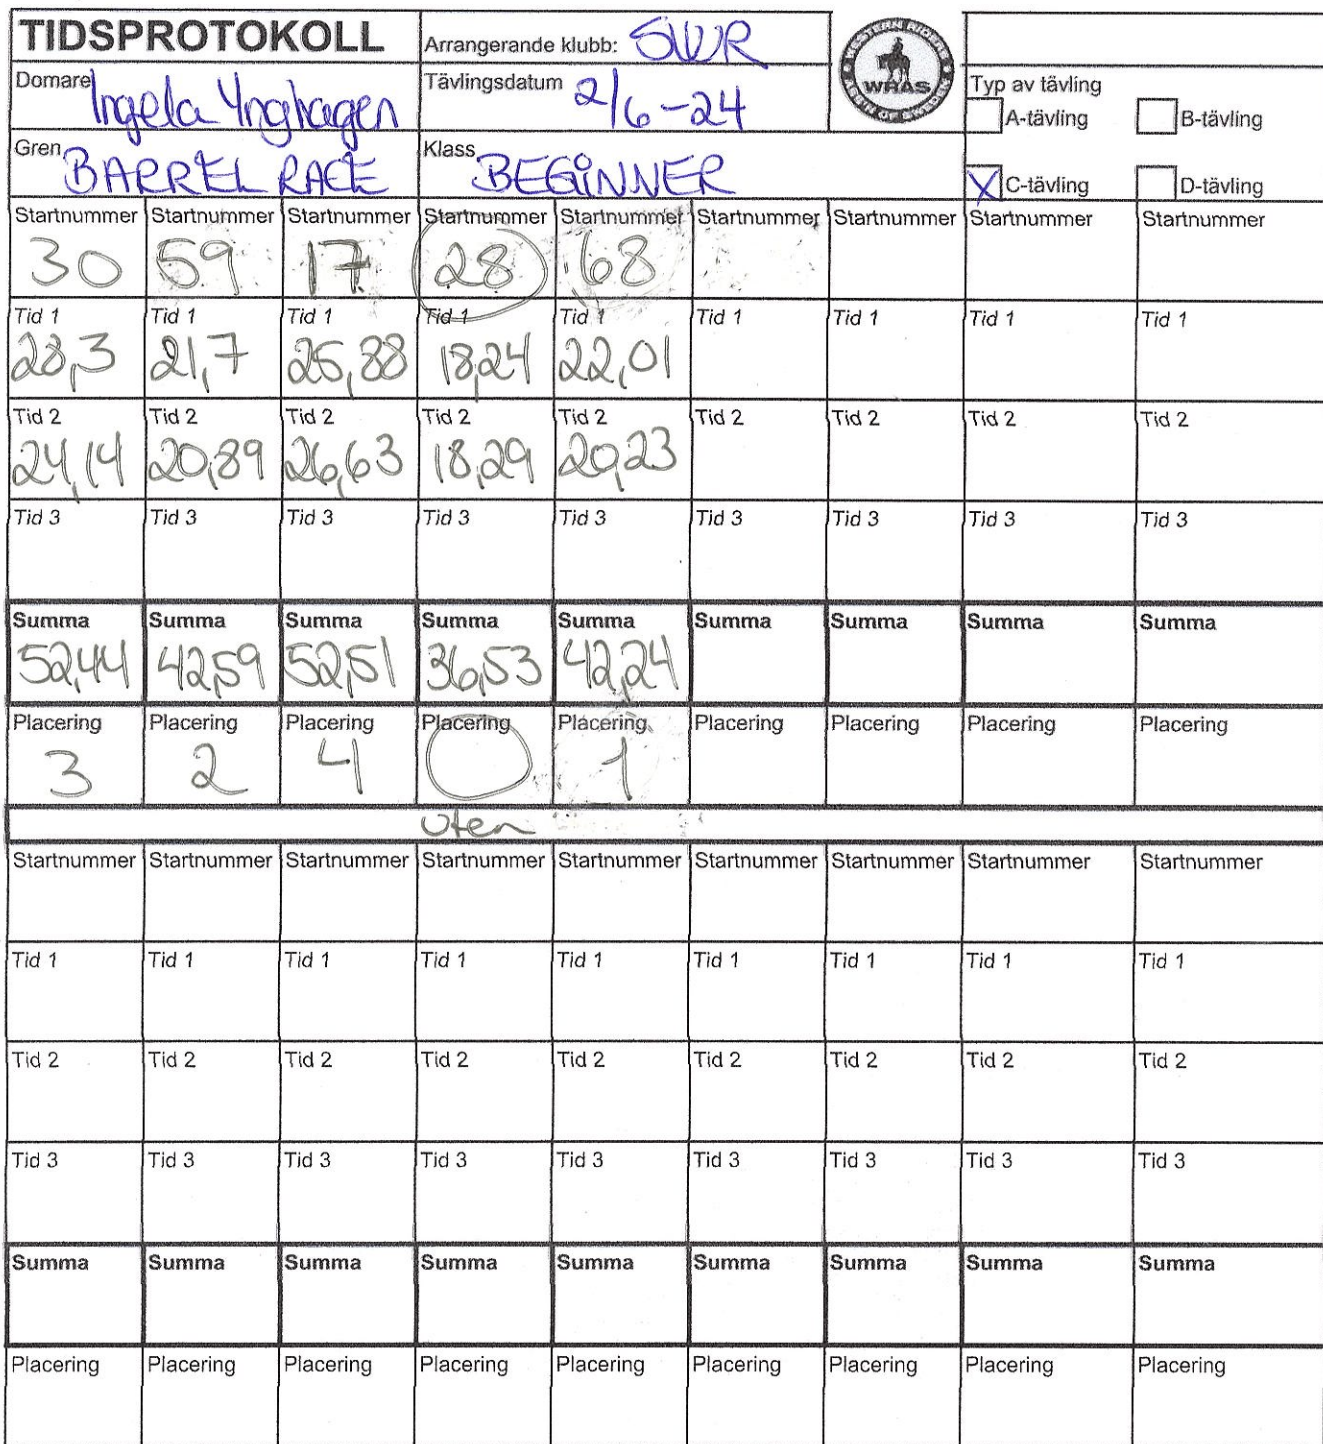 TIDSPROTOKOLL
Arrangerande klubb: SWR
Domare Ingela Ynghagen
Tävlingsdatum 2/6-24
WESTERN RIDERS
WRAS
OF SWEDEN
Typ av tävling
A-tävling B-tävling
Gren BARREL RACE
Klass BEGINNER
X C-tävling D-tävling
Startnummer Startnummer Startnummer Startnummer Startnummer Startnummer Startnummer Startnummer Startnummer
30 59 17 28 68
Tid 1 Tid 1 Tid 1 Tid 1 Tid 1 Tid 1 Tid 1 Tid 1 Tid 1
28,3 21,7 25,88 18,24 22,01
Tid 2 Tid 2 Tid 2 Tid 2 Tid 2 Tid 2 Tid 2 Tid 2 Tid 2
24,14 20,89 26,63 18,29 20,23
Tid 3 Tid 3 Tid 3 Tid 3 Tid 3 Tid 3 Tid 3 Tid 3 Tid 3
Summa Summa Summa Summa Summa Summa Summa Summa Summa
52,44 42,59 52,51 36,53 42,24
Placering Placering Placering Placering Placering Placering Placering Placering Placering
3 2 4 0 1
Uten
Startnummer Startnummer Startnummer Startnummer Startnummer Startnummer Startnummer Startnummer Startnummer
Tid 1 Tid 1 Tid 1 Tid 1 Tid 1 Tid 1 Tid 1 Tid 1 Tid 1
Tid 2 Tid 2 Tid 2 Tid 2 Tid 2 Tid 2 Tid 2 Tid 2 Tid 2
Tid 3 Tid 3 Tid 3 Tid 3 Tid 3 Tid 3 Tid 3 Tid 3 Tid 3
Summa Summa Summa Summa Summa Summa Summa Summa Summa
Placering Placering Placering Placering Placering Placering Placering Placering Placering